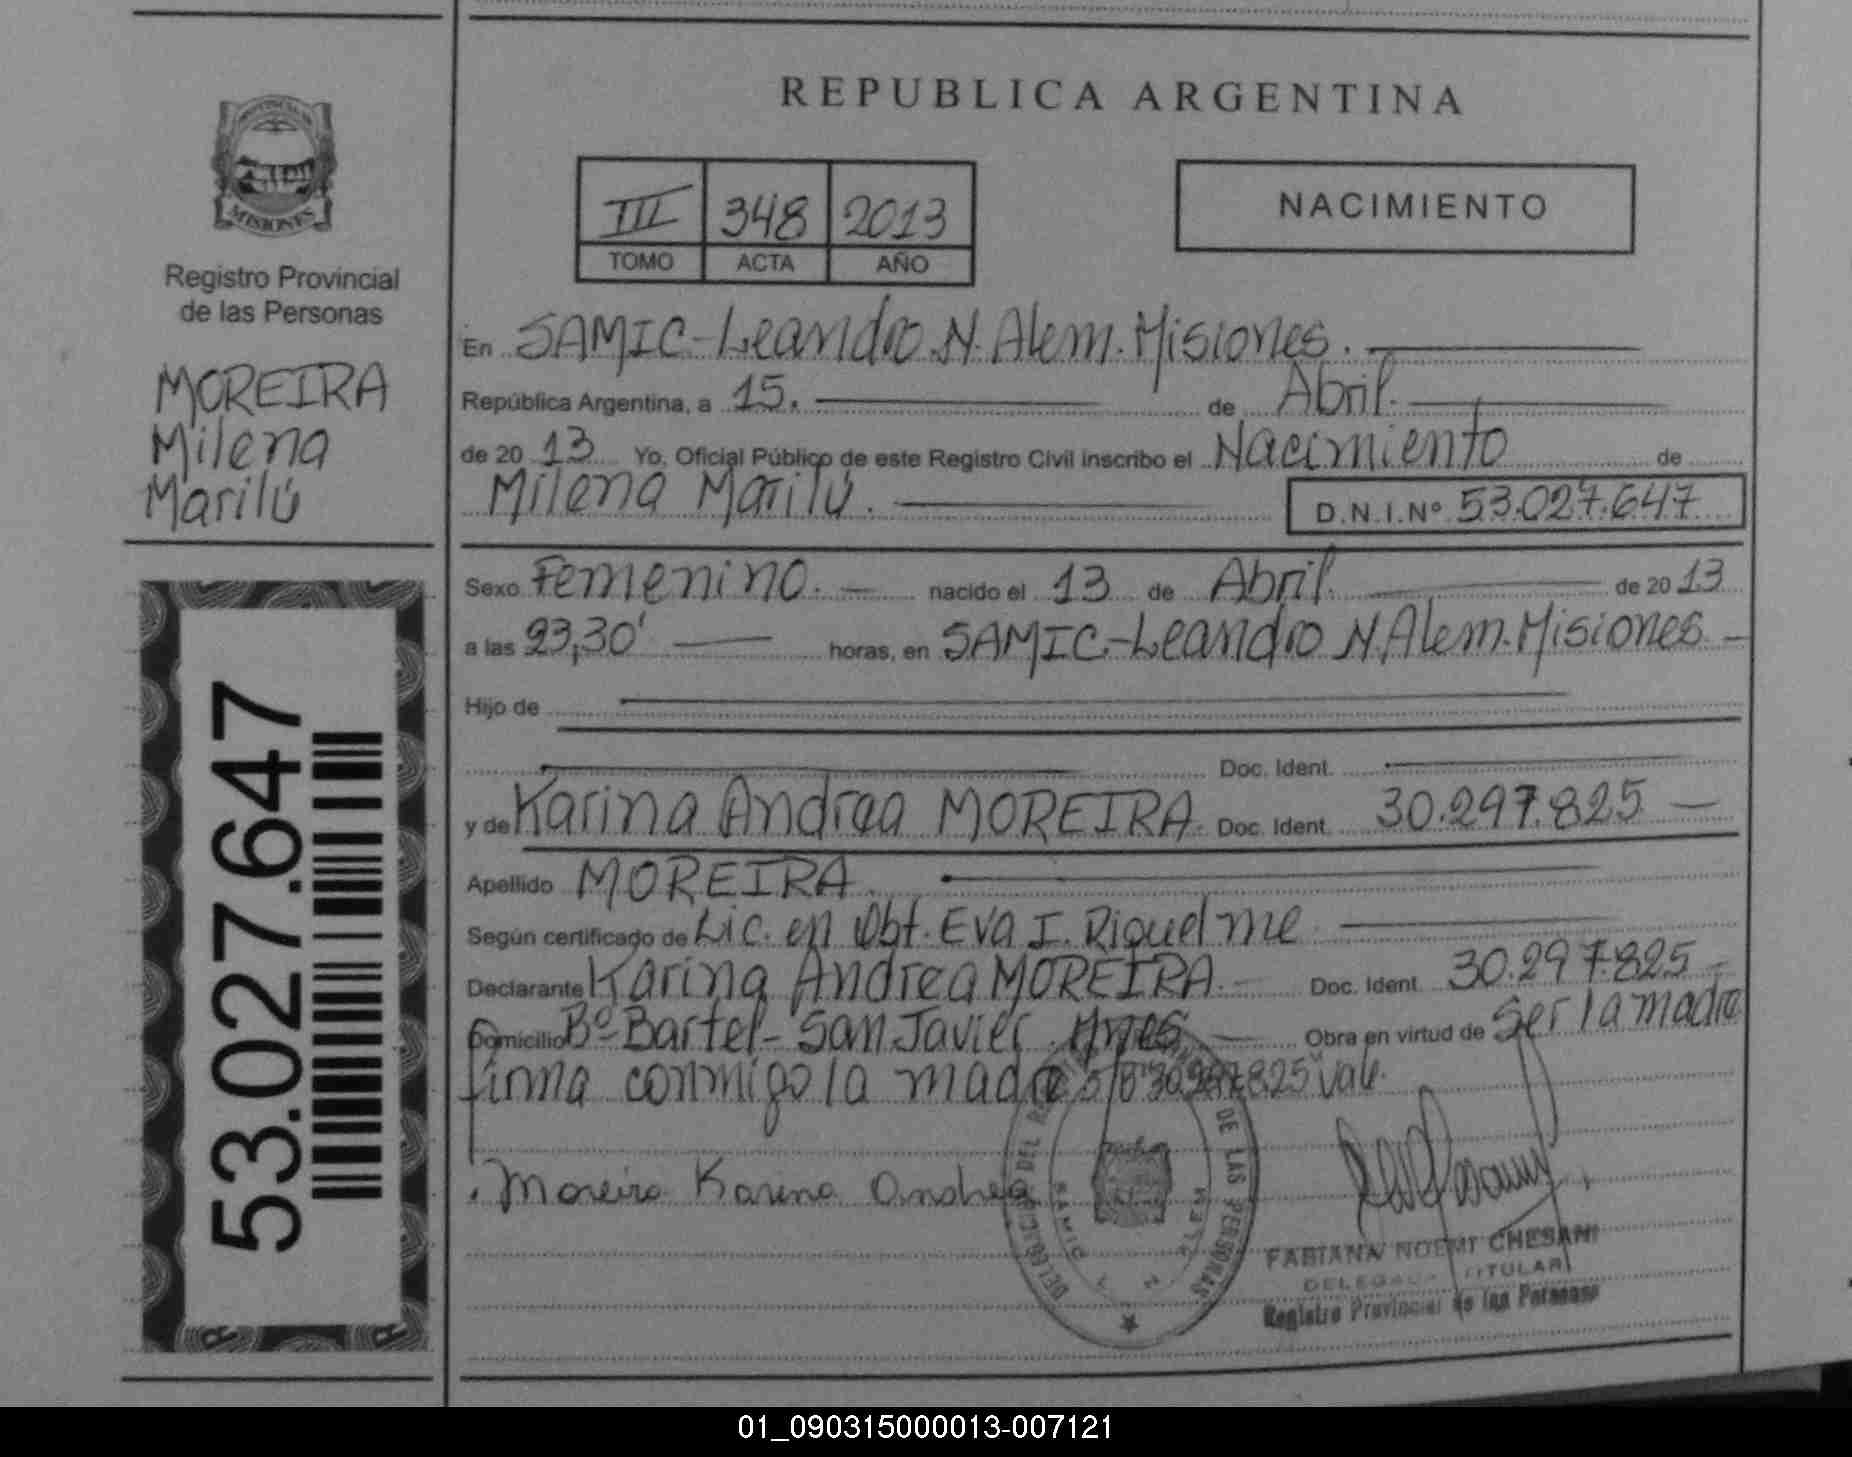 REPUBLICA ARGENTINA
PROVINCIA DE
MISIONES
Registro Provincial
de las Personas
MOREIRA
Milena
Marilú
53.027.647
III 348 2013
TOMO ACTA AÑO
NACIMIENTO
En SAMIC-Leandro N. Alem. Misiones.
República Argentina, a 15. de Abril.
de 20 13 Yo, Oficial Público de este Registro Civil inscribo el Nacimiento de
Milena Marilú. D.N.I.Nº 53.027.647
Sexo Femenino. nacido el 13 de Abril. de 20 13
a las 23,30' horas, en SAMIC-Leandro N. Alem. Misiones
Hijo de
Doc. Ident.
y de Karina Andrea MOREIRA. Doc. Ident. 30.297.825
Apellido MOREIRA.
Según certificado de Lic. en Obt. Eva I. Riquelme
Declarante Karina Andrea MOREIRA. Doc. Ident. 30.297.825
Domicilio Bº Bartel- San Javier. Mnes Obra en virtud de Ser la madre
firma conmigo la madre S/B 30.297.825 Vale.
Moreira Karina Andrea
DELEGACION DEL DE LAS PERSONAS
SAMIC L N ALEM
FABIANA NOEMI CHESANI
DELEGADA TITULAR
Registro Provincial de las Personas
01_090315000013-007121